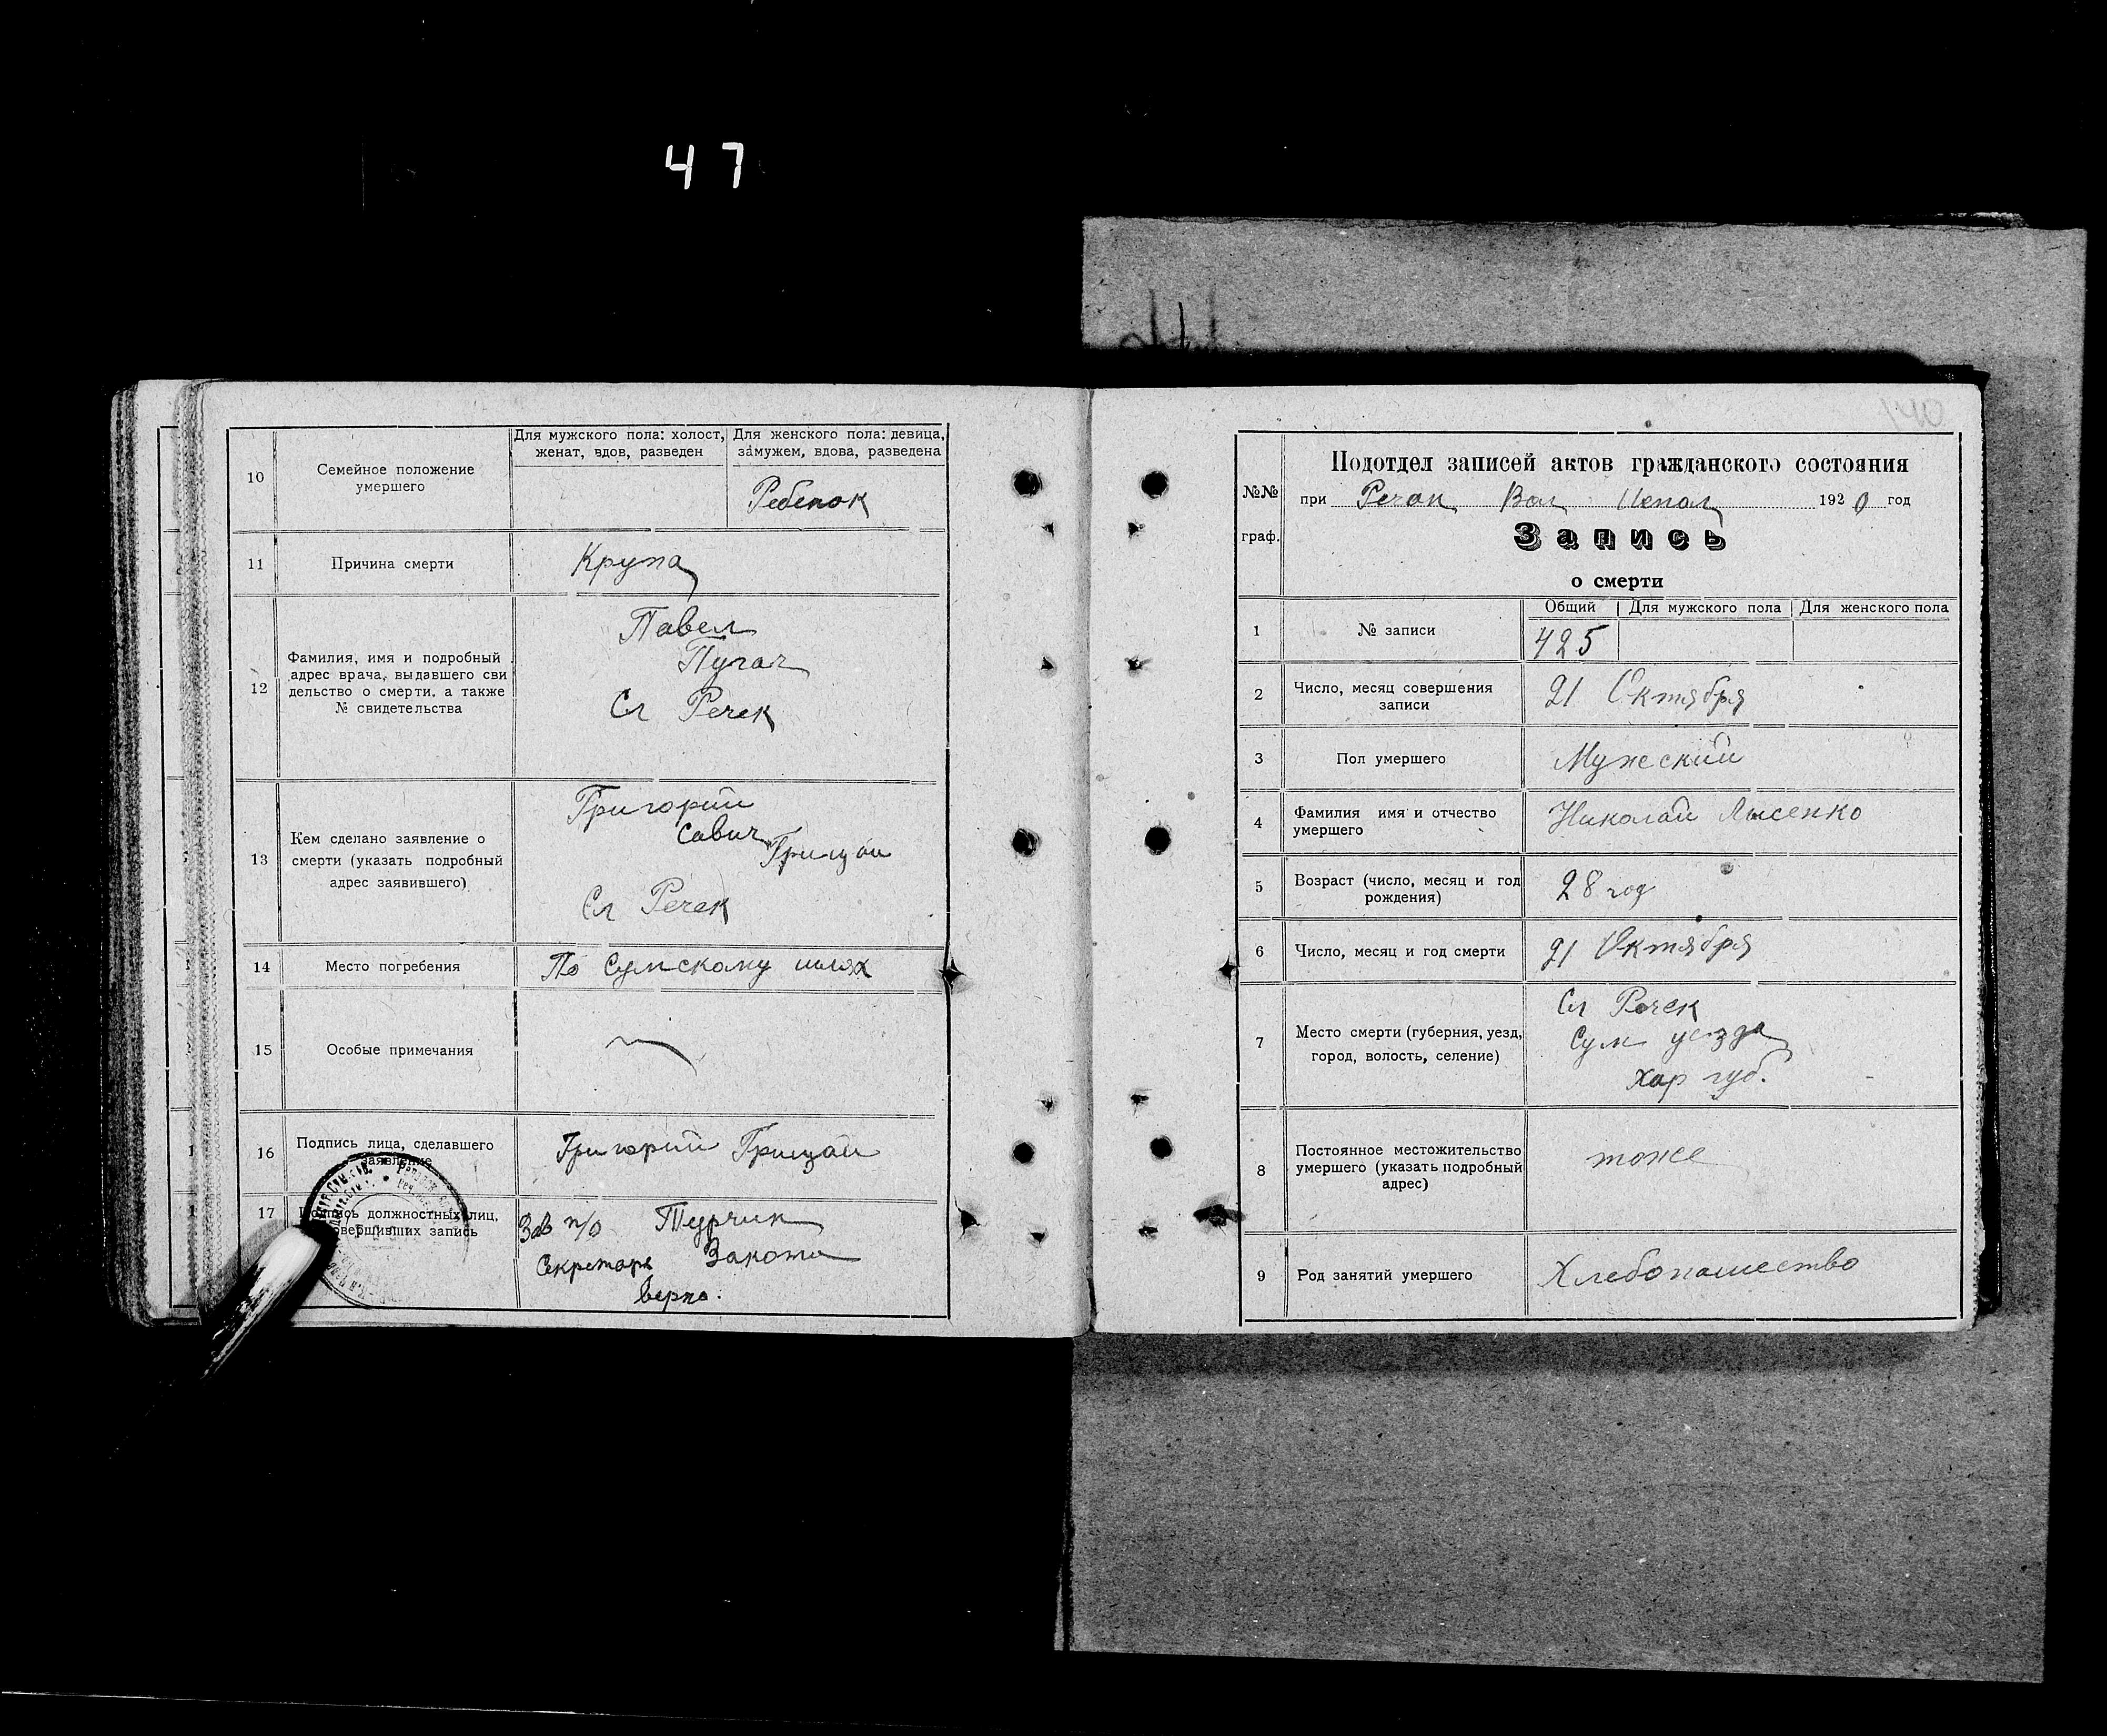 47
10
Семейное положение
умершего
Для мужского пола: холост,
женат, вдов, разведен
Для женского пола: девица,
замужем, вдова, разведена
Ребенок
11
Причина смерти
Крупа
12
Фамилия, имя и подробный
адрес врача, выдавшего сви
дельство о смерти, а также
№ свидетельства
Павел
Пугач
Сл Речек
13
Кем сделано заявление о
смерти (указать подробный
адрес заявившего)
Григорий
Савич
Грицай
Сл Речек
14
Место погребения
По Сумскому шлях
15
Особые примечания
16
Подпись лица, сделавшего
заявление
Григорий Грицай
17
Подпись должностных лиц,
совершивших запись
Зав п/о Турчин
Секретарь
верно.
140
№№
граф.
Подотдел записей актов гражданского состояния
при Речан Вол Испол 1920 год
Запись
о смерти
Общий
Для мужского пола
Для женского пола
1
№ записи
425
2
Число, месяц совершения
записи
21 Октября
3
Пол умершего
Мужский
4
Фамилия имя и отчество
умершего
Николай Лысенко
5
Возраст (число, месяц и год
рождения)
28 год
6
Число, месяц и год смерти
21 Октября
7
Место смерти (губерния, уезд,
город, волость, селение)
Сл Речек
Сум уезда
Хар губ.
8
Постоянное местожительство
умершего (указать подробный
адрес)
тоже
9
Род занятий умершего
Хлебопашество